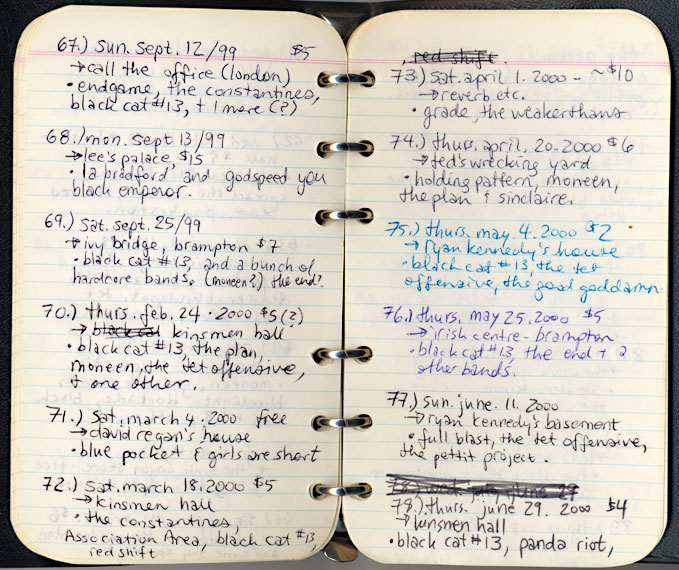 67.) Sun. Sept. 12/99 $5
→call the office (london)
• endgame, the constantines,
black cat #13, + 1 more (?)
68.) mon. Sept 13/99
→lee's palace $15
• la bradford and godspeed you
black emperor.
69.) Sat. Sept. 25/99
→ivy bridge, brampton $7
• black cat #13, and a bunch of
hardcore bands. (moneen?) the end?
70.) thurs. feb. 24 • 2000 $5 (?)
→black cat kinsmen hall
• black cat #13, the plan,
moneen, the tet offensive,
+ one other.
71.) Sat. march 4. 2000 free
→david regan's house
• blue pocket & girls are short
72.) Sat. march 18. 2000 $5
→kinsmen hall
• the constantines,
Association Area, black cat #13,
red shift
red shift.
73.) Sat. april 1. 2000 - ~$10
→reverb etc.
• grade, the weakerthans
74.) thurs. april. 20. 2000 $6
→ted's wrecking yard
• holding pattern, moneen,
the plan & sinclaire.
75.) thurs. may. 4. 2000 $2
→ryan kennedy's house
• black cat #13, the tet
offensive, the good goddamn.
76.) thurs. may 25. 2000 $5
→irish centre - brampton
• black cat #13, the end + 2
other bands.
77.) Sun. june. 11. 2000
→ryan kennedy's basement
• full blast, the tet offensive,
the pettit project.
78.) thurs. june 29. 2000 $4
→kinsmen hall
• black cat #13, panda riot,